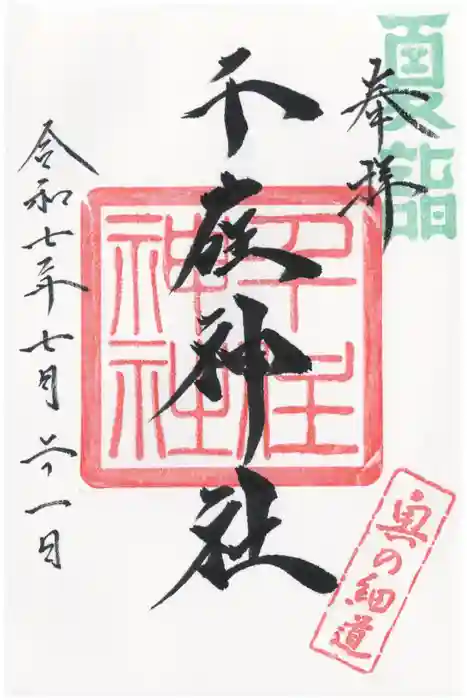 夏詣
奉拝
千住神社
千住
神社
令和七年七月廿一日
奥の細道